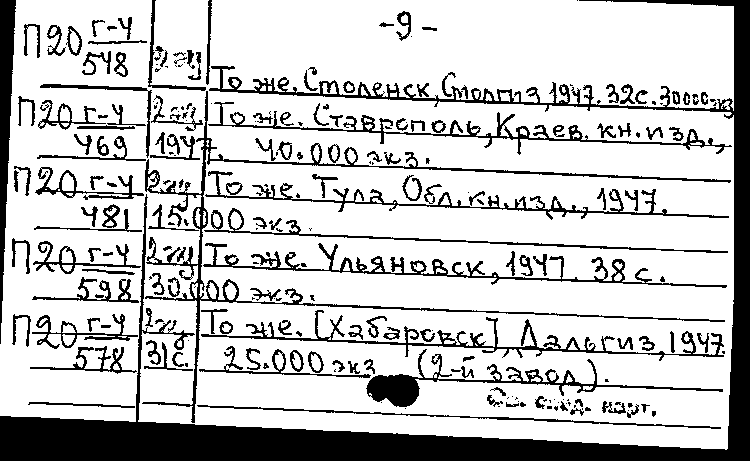 -9-
П20 г-4 2 экз
548 То же. Смоленск, Смолгиз, 1947. 32с. 30000экз
П20 г-4 2 экз. То же. Ставрополь, Краев. кн. изд.,
469 1947. 40.000 экз.
П20 г-4 2 экз То же. Тула, Обл. кн. изд., 1947.
481 15.000 экз.
П20 г-4 2 экз То же. Ульяновск, 1947. 38 с.
598 30.000 экз.
П20 г-4 2 экз То же. [Хабаровск], Дальгиз, 1947
578 31с. 25.000 экз (2-й завод).
См. след. карт.